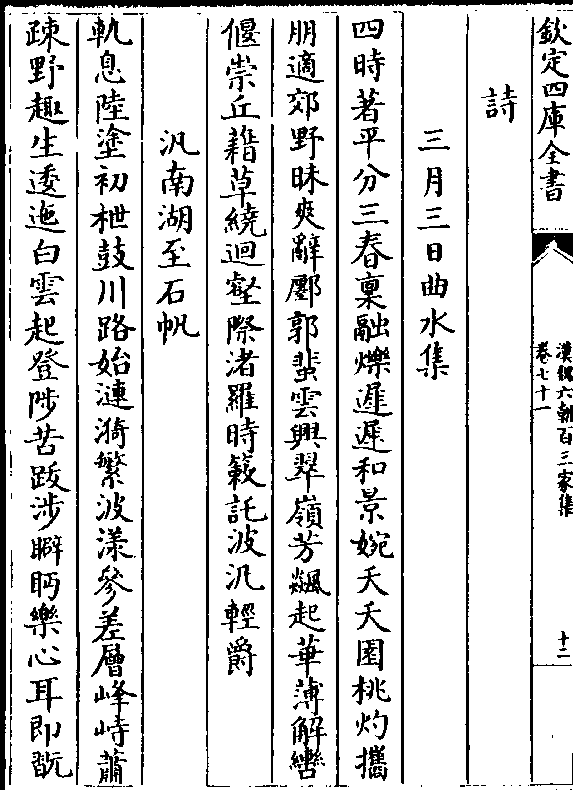 欽定四庫全書
漢魏六朝百三家集
卷七十一
十二
詩
三月三日曲水集
四時著平分三春稟融爍遲遲和景婉夭夭園桃灼攜
朋適郊野昧爽辭鄽郭蜚雲興翠嶺芳飆起華薄解轡
偃崇丘藉草繞迴壑際渚羅時蔌託波汎輕爵
汎南湖至石帆
軌息陸塗初枻鼓川路始漣漪繁波漾參差層峰峙蕭
疎野趣生逶迤白雲起登陟苦跋涉睥盻樂心耳即翫